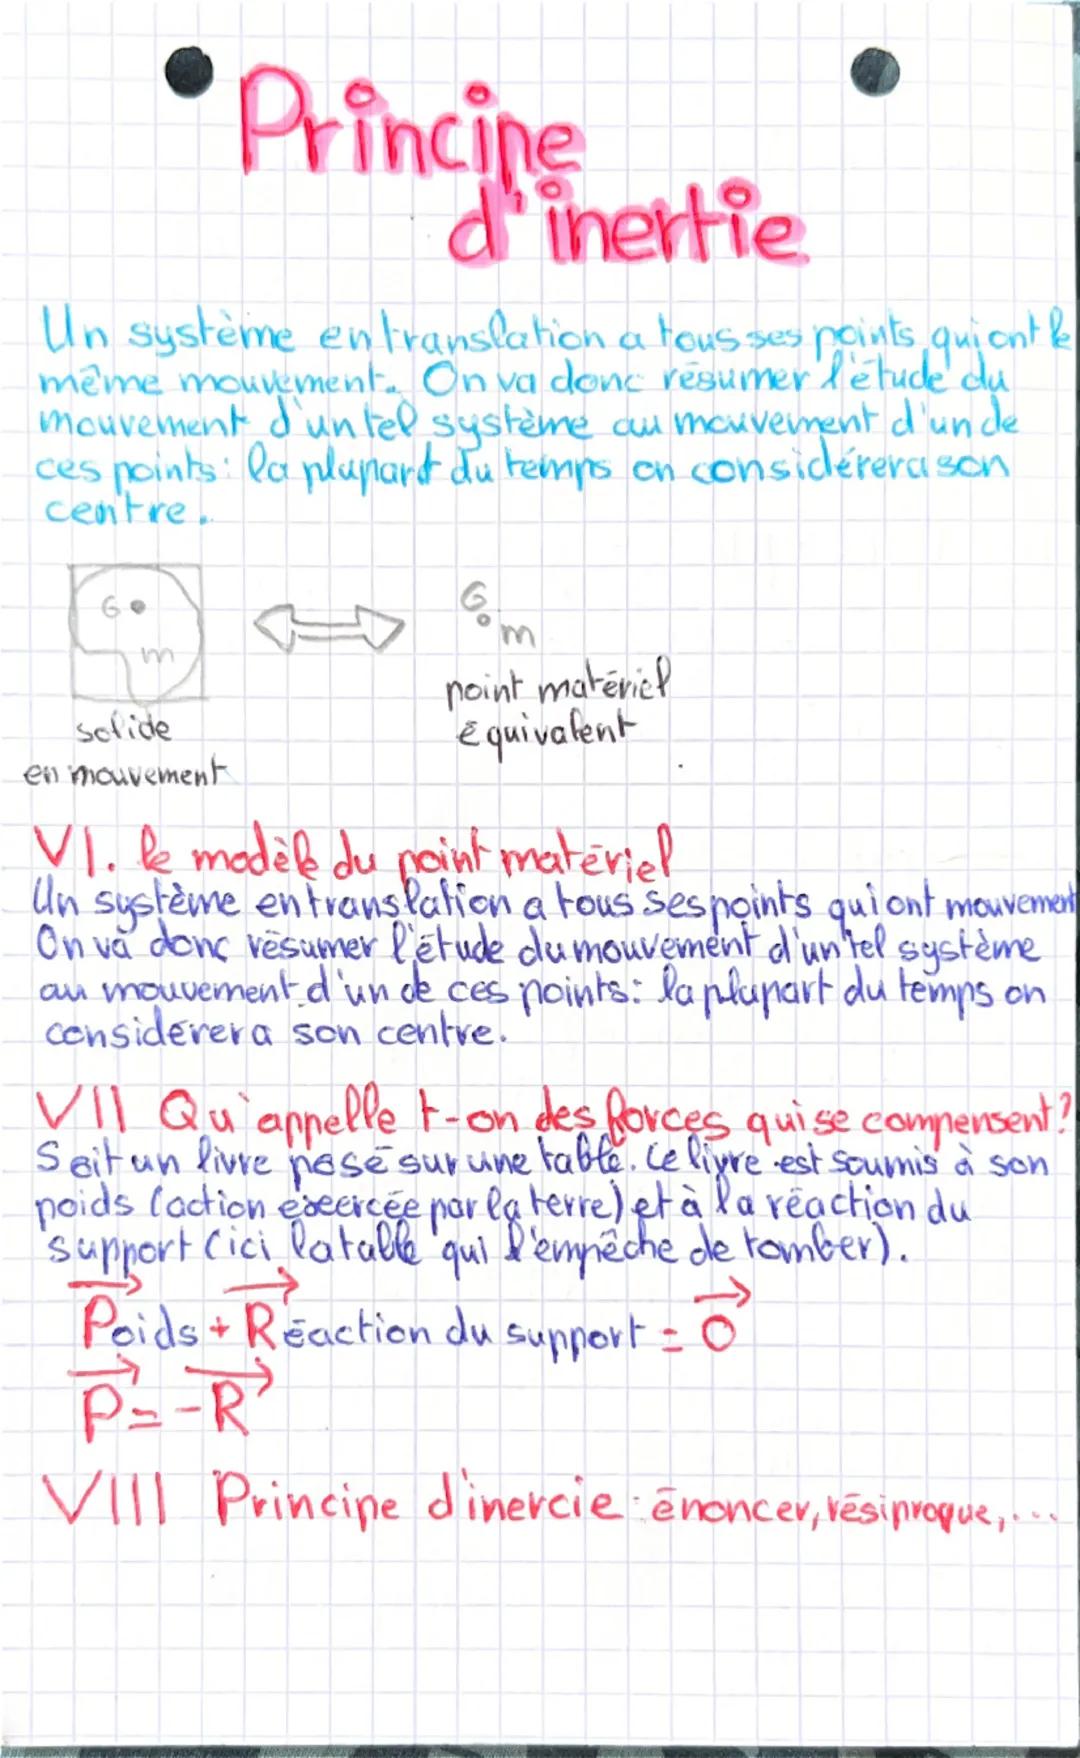 Principe
d'inertie
Un système en translation a tous ses points qui ont le
même mouvement. On va donc résumer l'étude du
mouvement d'un tel système au mouvement d'un de
ces points : la plupart du temps on considérera son
centre.
G
m
G
m
point matériel
équivalent
solide
en mouvement
VI. le modèle du point matériel
Un système en translation a tous ses points qui ont mouvement
On va donc résumer l'étude du mouvement d'un tel système
au mouvement d'un de ces points : la plupart du temps on
considérera son centre.
VII Qu'appelle t-on des forces qui se compensent ?
Soit un livre posé sur une table. Ce livre est soumis à son
poids (action exercée par la terre) et à la réaction du
support (ici la table qui l'empêche de tomber).
Poids + Réaction du support = 0
P = -R
VIII Principe d'inercie : énoncer, résiproque,...